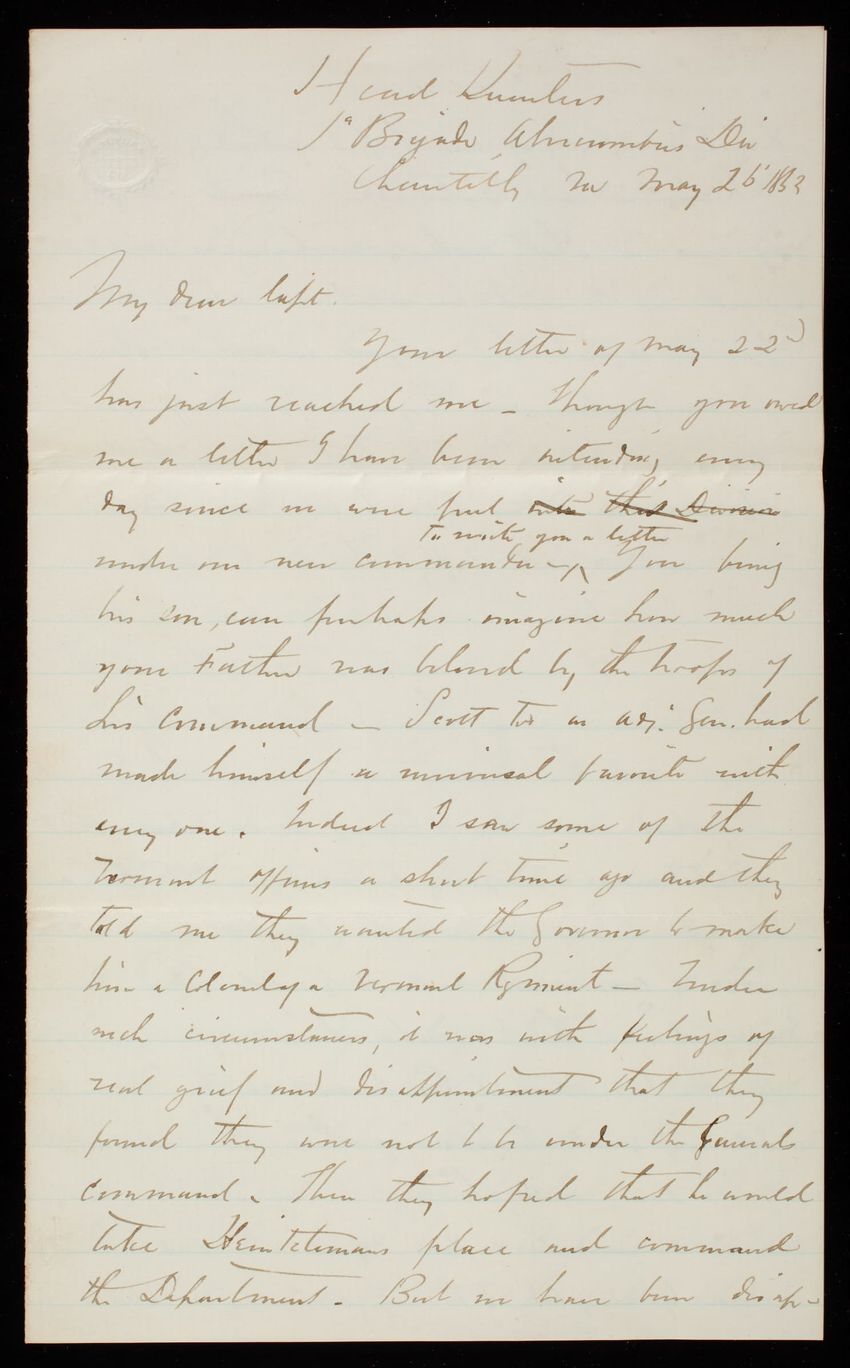 Head Quarters
1st Brigade Abercrombie's Div
Chantilly Va May 26 1863
My dear Capt.
Your letter of May 22d
has just reached me - though you owed
me a letter I have been intending every
day since we were put into this Division
to write you a letter
under our new commander - You being
his son, can perhaps imagine how much
your Father was beloved by the troops of
his command - Scott too as adj. Gen. had
made himself a universal favorite with
every one. Indeed I saw some of the
Vermont officers a short time ago and they
told me they wanted the Governor to make
him a Colonel of a Vermont Regiment - Under
such circumstances, it was with feelings of
real grief and disappointment that they
found they were not to be under the Generals
command. Then they hoped that he would
take Heintzelmans place and command
the Department. But we have been disap-